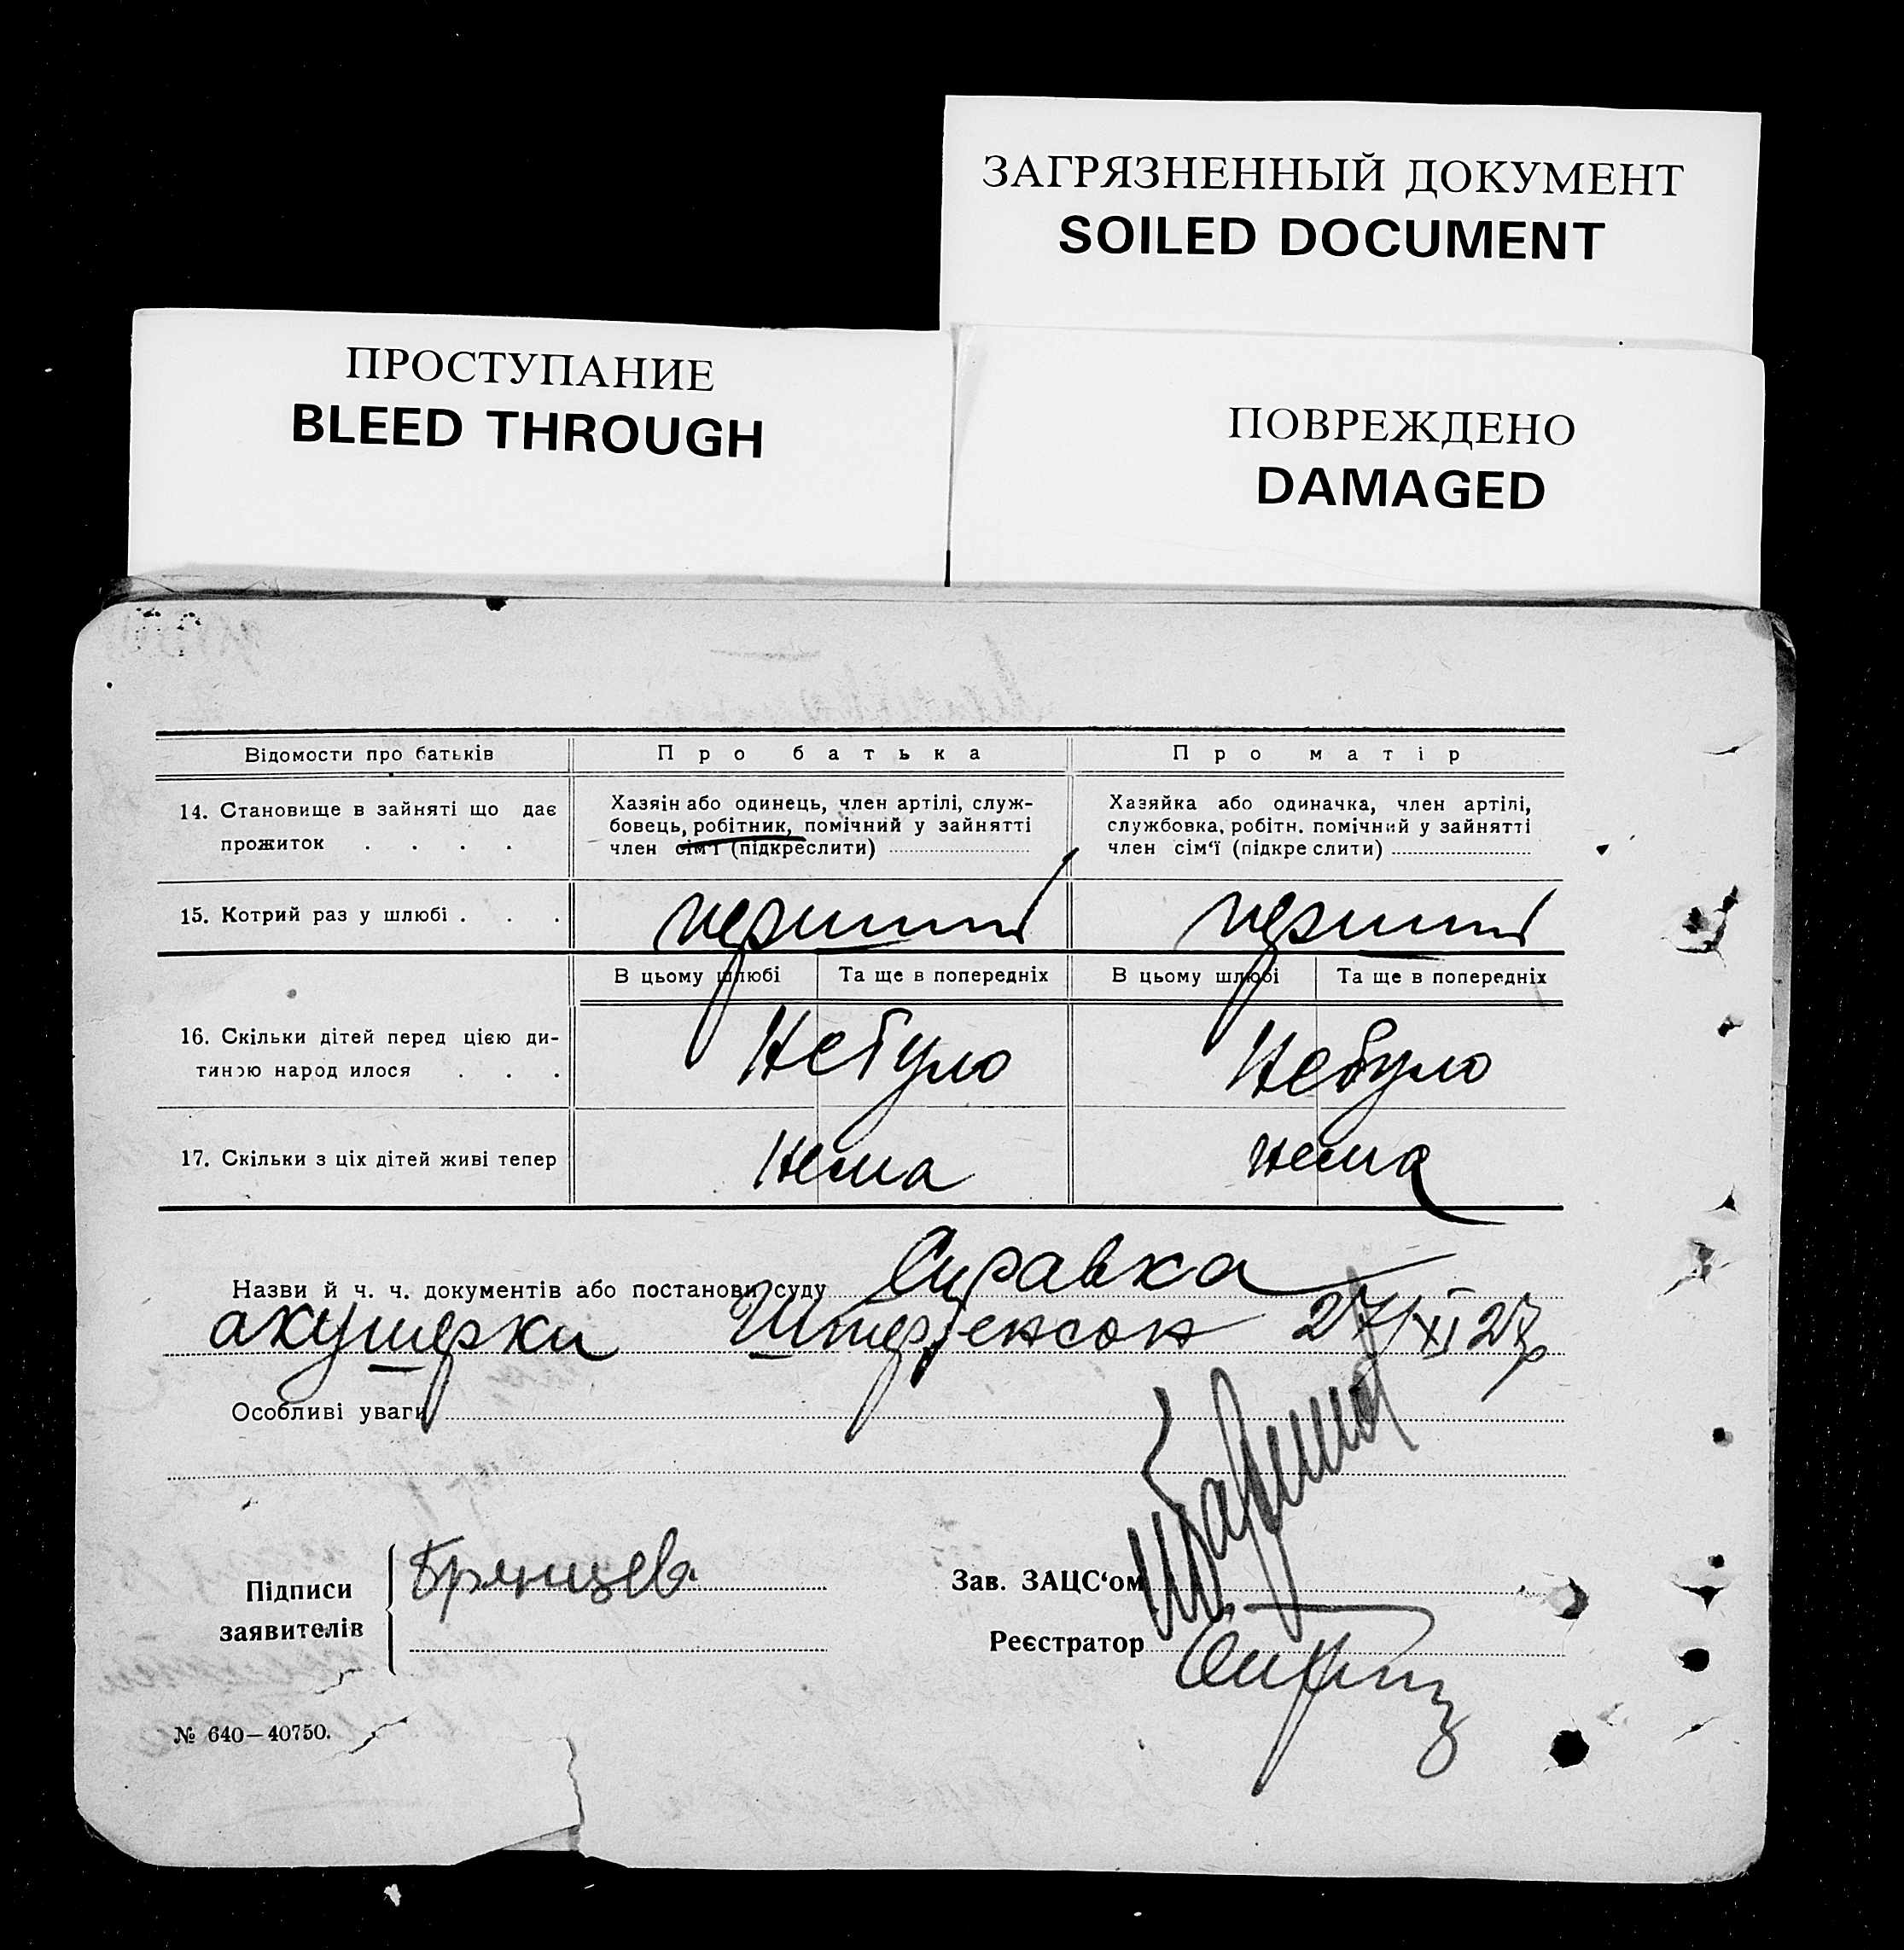 ЗАГРЯЗНЕННЫЙ ДОКУМЕНТ
SOILED DOCUMENT
ПРОСТУПАНИЕ
BLEED THROUGH
ПОВРЕЖДЕНО
DAMAGED
Відомости про батьків
Про батька
Про матір
14. Становище в зайняті що дає
прожиток . . . .
Хазяїн або одинець, член артілі, служ-
бовець, робітник, помічний у зайнятті
член сім'ї (підкреслити)
Хазяйка або одиначка, член артілі,
службовка, робітн. помічний у зайнятті
член сім'ї (підкре слити)
15. Котрий раз у шлюбі . . .
перший
перший
В цьому шлюбі
Та ще в попередніх
В цьому шлюбі
Та ще в попередніх
16. Скільки дітей перед цією ди-
тиною народ илося . . .
Небуло
Небуло
17. Скільки з ціх дітей живі тепер
Нема
нема
Назви й ч. ч. документів або постанови суду Справка
акушерки 27/XI 27р
Особливі уваги
Підписи
заявителів
Брянцев
Зав. ЗАЦС'ом
Реєстратор
№ 640—40750.